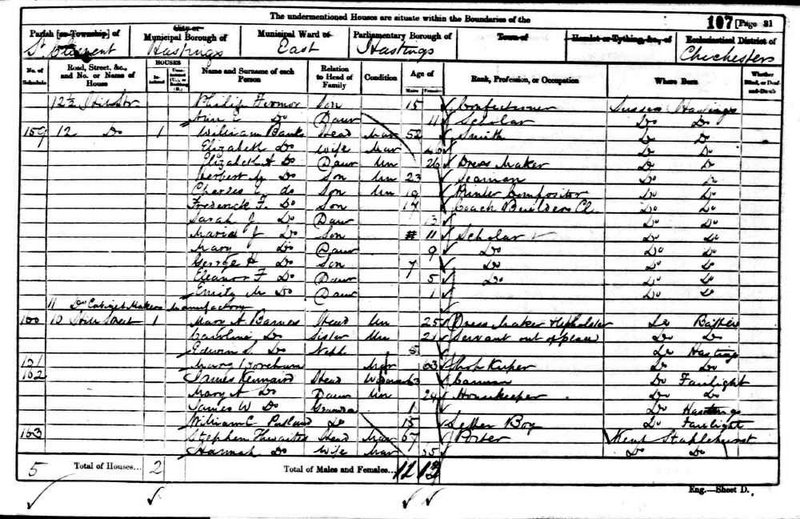 The undermentioned Houses are situate within the Boundaries of the
107 [Page 31
Parish [or Township] of
City or Municipal Borough of
Municipal Ward of
Parliamentary Borough of
Town of
Hamlet or Tything, &c., of
Ecclesiastical District of
St Clement
Hastings
East
Hastings
Chichester
No. of Schedule
Road, Street, &c., and No. or Name of House
HOUSES
Name and Surname of each Person
Relation to Head of Family
Condition
Age of
Males Females
Rank, Profession, or Occupation
Where Born
Whether
12½ Philip Son 15 Confectioner Sussex Hastings
Ann E Do Daur 11 Scholar Do Do
159 12 Do 1 William Banks Head Mar 52 Smith Do Do
Elizabeth Do Wife Mar Do Do
Elizabeth A Do Daur Un 26 Dress Maker Do Do
Herbert Do Son Un 23 Seaman Do Do
Charles do Son Un 19 Printer Compositor Do Do
Frederick F. Do Son 17 Coach Builders Do Do
Sarah J Do Daur 13 Do Do
Do Son 11 Scholar Do Do
Mary Do Daur 9 Do Do Do
George H Do Son 7 Do Do Do
Eleanor F Do Daur 5 Do Do Do
Emily M Do Daur 1 Do Do
11 Do Cabinet Makers Manufactory
160 10 Street 1 Mary A Barnes Head Un 25 Dress Maker Upholster Do Battle
Caroline Do Sister Un 21 Servant out of place Do Do
Edwin Do Neph 5 Do Hastings
161 Mary Mar 63 Do Do
162 James Kennard Head 63 Carman Do Fairlight
Mary A Do Daur Un 24 Housekeeper Do Do
James W Do Grandson 1 Do Hastings
William C Do 15 Letter Boy Do Fairlight
163 Stephen Thwaites Head Mar 67 Porter Kent Staplehurst
Hannah Do Wife Mar Do Do
5 Total of Houses... 2 Total of Males and Females... 12 13
Eng.—Sheet D.